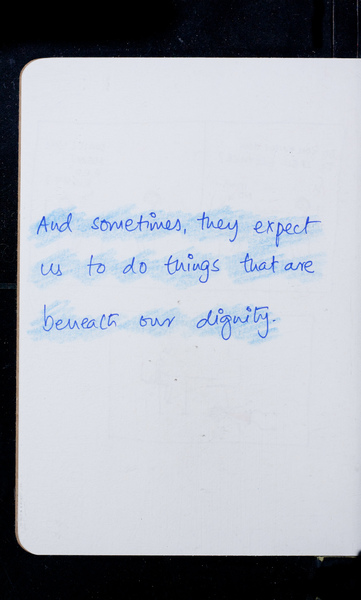 And sometimes, they expect
us to do things that are
beneath our dignity.